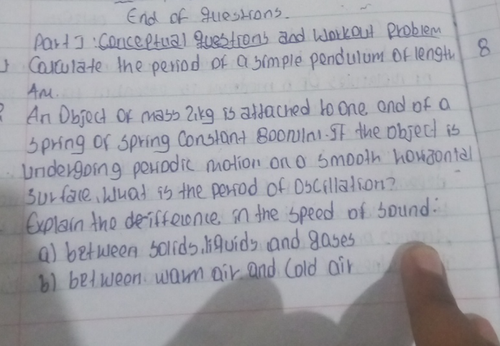 End of questions.
Part I : Conceptual questions and workout Problem
Calculate the period of a simple pendulum of length 8
4m.
An Object of mass 2kg is attached to one end of a
spring of spring constant 800N/m. If the object is
undergoing periodic motion on a smooth horizontal
surface, what is the period of oscillation?
Explain the deifference in the speed of sound:
a) between solids, liquids and gases
b) between warm air and cold air